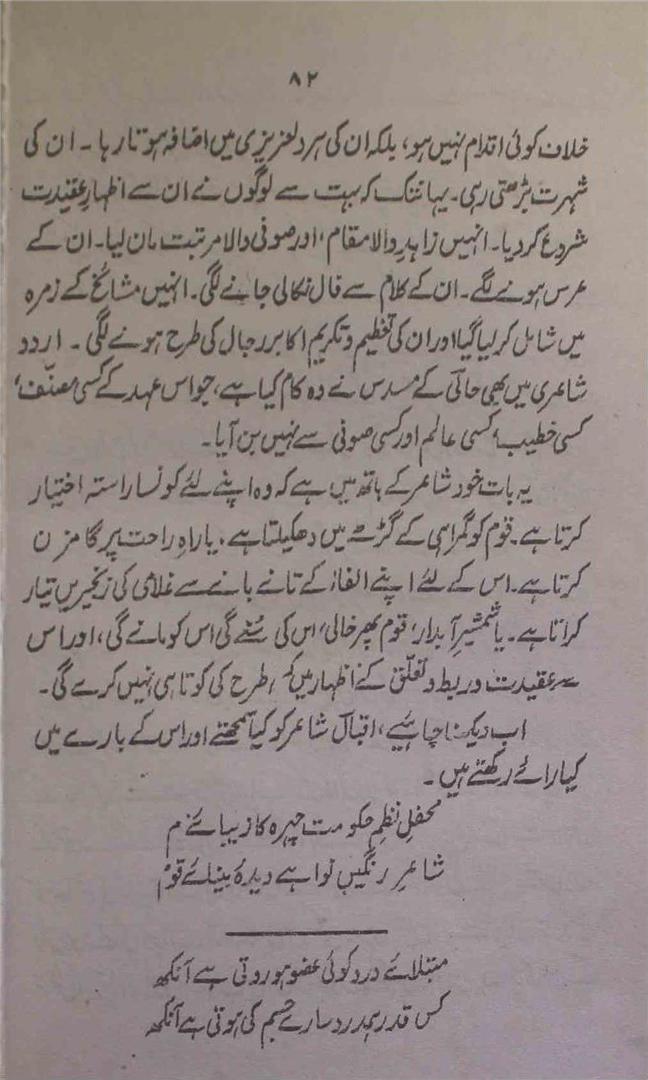 ۸۲
خلاف کوئی اقدام نہیں ہو، بلکہ ان کی ہر دلعزیزی میں اضافہ ہوتا رہا۔ ان کی
شہرت بڑھتی رہی۔ یہانتک کہ بہت سے لوگوں نے ان سے اظہارِ عقیدت
شروع کر دیا۔ انہیں زاہدِ والا مقام، اور صوفی والا مرتبت مان لیا۔ ان کے
عرس ہونے لگے۔ ان کے کلام سے فال نکالی جانے لگی۔ انہیں مشائخ کے زمرہ
میں شامل کر لیا گیا اور ان کی تعظیم و تکریم اکابر رجال کی طرح ہونے لگی۔ اردو
شاعری میں بھی حالی کے مسدس نے وہ کام کیا ہے، جو اس عہد کے کسی مصنّف،
کسی خطیب، کسی عالم اور کسی صوفی سے نہیں بن آیا۔
یہ بات خود شاعر کے ہاتھ میں ہے کہ وہ اپنے لئے کونسا راستہ اختیار
کرتا ہے۔ قوم کو گمراہی کے گڑھے میں دھکیلتا ہے، یا راہِ راحت پر گامزن
کرتا ہے۔ اس کے لئے اپنے الفاظ کے تانے بانے سے غلامی کی زنجیریں تیار
کراتا ہے۔ یا شمشیرِ آبدار، قوم پھر خالی، اس کی سُنے گی اس کو مانے گی، اور اس
سے عقیدت و ربط و تعلّق کے اظہار میں طرح کی کوتاہی نہیں کرے گی۔
اب دیکھنا چاہئیے، اقبالؔ شاعر کو کیا سمجھتے اور اس کے بارے میں
کیا رائے رکھتے ہیں۔
محفلِ نظمِ حکومت چہرہ کا زیبائے م
شاعرِ رنگیں نوا ہے دیدۂ بینائے قوم
مبتلائے درد کوئی عضو ہو روتی ہے آنکھ
کس قدر ہمدرد سارے جسم کی ہوتی ہے آنکھ